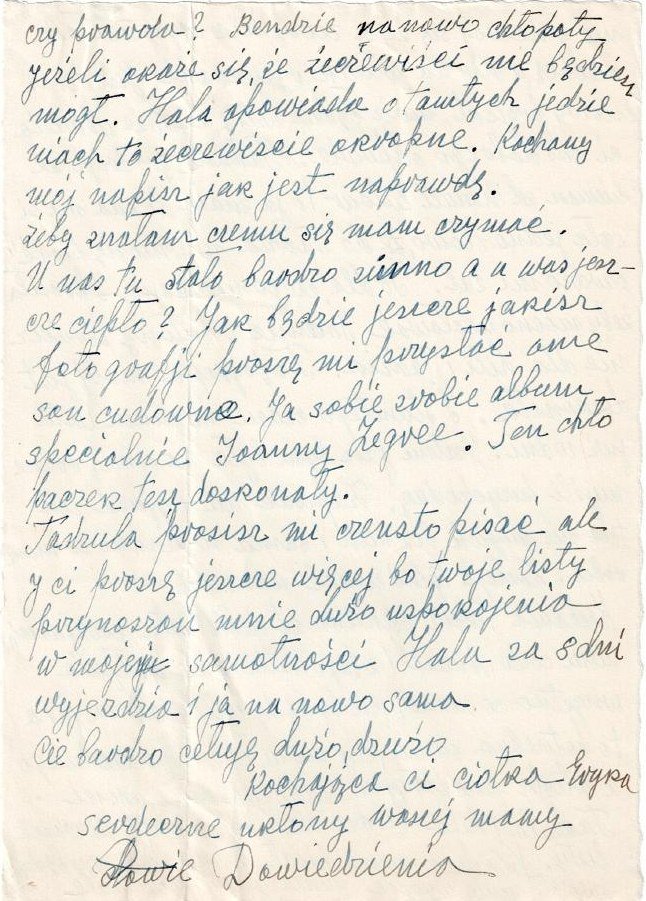 czy prawda? Bendzie na nowo chłopoty
jeżeli okaże się, że żeczewiści nie będziesz
mógł. Hala opowiada o tamtych jedzie
niach to żeczewiście okropne. Kochany
mój napisz jak jest naprawdę.
Żeby znałam czemu się mam czymać.
U nas tu stało bardzo zimno a u was jesz-
cze ciepło? Jak będzie jeszcze jakisz
fotografji proszę mi przysłać one
son cudowne. Ja sobie zrobie album
specialnie Joanny Zegree. Ten chło
paczek tesz doskonały.
Tadzula prosisz mi czensto pisać ale
y ci proszę jeszcze więcej bo twoje listy
przynoszou mnie dużo uspokojenia
w mojej samotności Hala za 8 dni
wyjezdza i ja na nowo sama
Cie bardzo całuję dużo, drużo
Kochająca ci ciotka Eryka
serdeczne ukłony wasiej mamy
Dowiedzienia